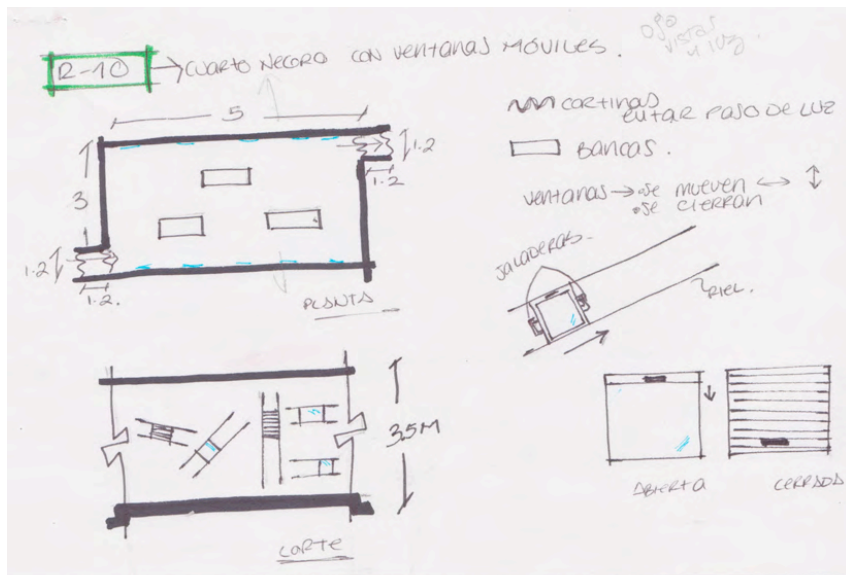 R-10 → CUARTO NEGRO CON VENTANAS MÓVILES.
OJO
VISTAS
LUZ.
5
1.2
1.2
3
1.2
1.2.
PLANTA
CORTINAS
EVITAR PASO DE LUZ
BANCAS.
VENTANAS → •SE MUEVEN ↔ ↕
•SE CIERRAN
JALADERAS.
RIEL.
3.5M
CORTE
ABIERTA
CERRADA